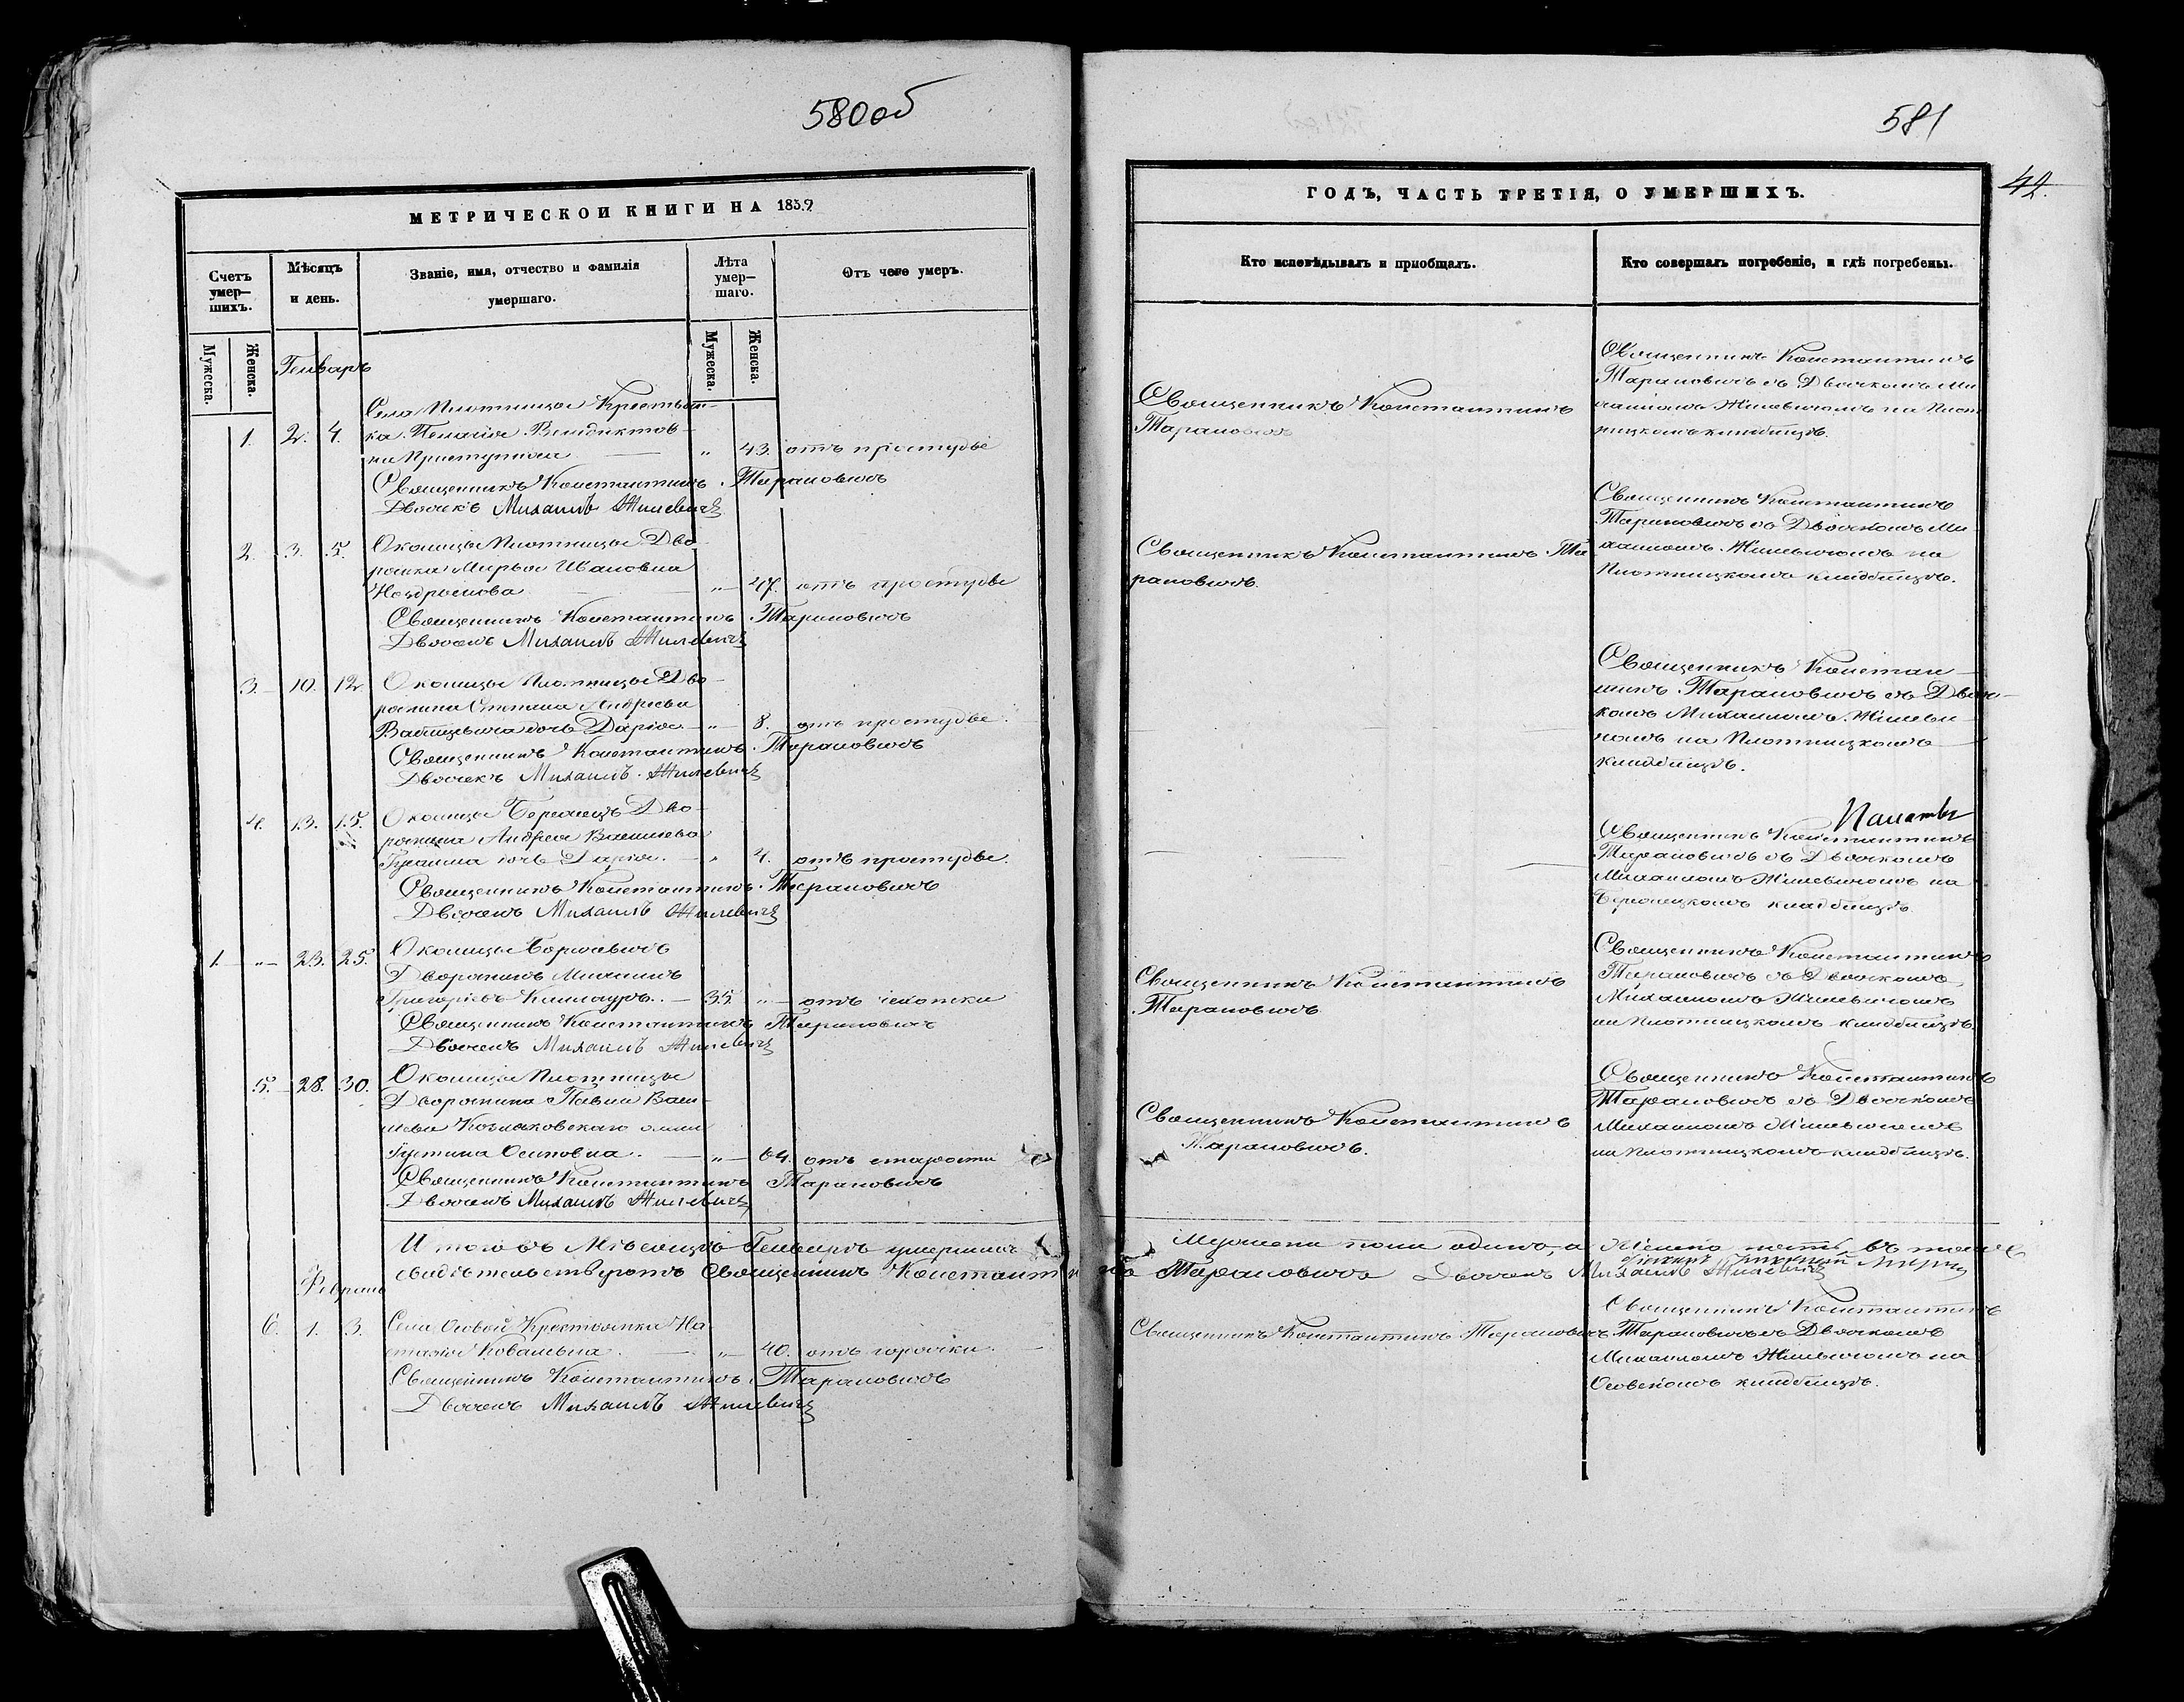 580 об
МЕТРИЧЕСКОЙ КНИГИ НА 1859
Счетъ умер-
шихъ.
Мѣсяцъ
и день.
Званіе, имя, отчество и фамилія
умершаго.
Лѣта
умер-
шаго.
Отъ чего умеръ.
Мужеска.
Женска.
Мужеска.
Женска.
Генварь
Села Плотницы Крестьян-
1. 2. 4. ка Пелагія Венедиктов-
на " 43. отъ простуды
Священникъ Константинъ Тарановичъ
Дьячекъ Михаилъ Жилевичъ
2. 3. 5. Околицы Плотницы Дво-
рянка Марья Ивановна
" 47. отъ простуды
Священникъ Константинъ Тарановичъ
Дьячекъ Михаилъ Жилевичъ
3. 10. 12. Околицы Плотницы Дво-
рянина Степана Андреева
дочь Дарія " 8. отъ простуды.
Священникъ Константинъ Тарановичъ
Дьячекъ Михаилъ Жилевичъ
4. 13. 15. Околицы Дво-
рянина Андрея Васильева
дочь Дарія. " 4. отъ простуды.
Священникъ Константинъ Тарановичъ
Дьячекъ Михаилъ Жилевичъ
1. " 23. 25. Околицы
Дворянинъ Михаилъ
Григорьевъ 35. " отъ чахотки
Священникъ Константинъ Тарановичъ
Дьячекъ Михаилъ Жилевичъ
5. 28. 30. Околицы Плотницы
Дворянина Павла Васи-
льева жена
Іустина Осиповна. " 64. отъ старости
Священникъ Константинъ Тарановичъ
Дьячекъ Михаилъ Жилевичъ
Итого въ Мѣсяцѣ Генварѣ умершихъ
свидѣтельствуютъ Священникъ Константинъ
Февраль
6. 1. 3. Села Осовой Крестьянка На-
стасія Ковалевна. " 40. отъ горячки.
Священникъ Константинъ Тарановичъ
Дьячекъ Михаилъ Жилевичъ
581
42.
ГОДЪ, ЧАСТЬ ТРЕТІЯ, О УМЕРШИХЪ.
Кто исповѣдывалъ и пріобщалъ.
Кто совершалъ погребеніе, и гдѣ погребены.
Священникъ Константинъ
Тарановичъ
Священникъ Константинъ
Тарановичъ съ Дьячкомъ Ми-
хаиломъ Жилевичомъ на Плот-
ницкомъ кладбищѣ.
Священникъ Константинъ Та-
рановичъ.
Священникъ Константинъ
Тарановичъ съ Дьячкомъ Ми-
хаиломъ Жилевичомъ на
Плотницкомъ кладбищѣ.
Священникъ Констан-
тинъ Тарановичъ съ Дьяч-
комъ Михаиломъ Жилеви-
чомъ на Плотницкомъ
кладбищѣ.
Священникъ Константинъ
Тарановичъ съ Дьячкомъ
Михаиломъ Жилевичомъ на
кладбищѣ.
Священникъ Константинъ
Тарановичъ
Священникъ Константинъ
Тарановичъ съ Дьячкомъ
Михаиломъ Жилевичомъ
на Плотницкомъ кладбищѣ.
Священникъ Константинъ
Тарановичъ.
Священникъ Константинъ
Тарановичъ съ Дьячкомъ
Михаиломъ Жилевичомъ
на Плотницкомъ кладбищѣ.
Мужеска пола одинъ, а Женска пять въ томъ
Тарановичъ Дьячекъ Михаилъ Жилевичъ
Священникъ Константинъ Тарановичъ
Священникъ Константинъ
Тарановичъ съ Дьячкомъ
Михаиломъ Жилевичомъ на
Осовскомъ кладбищѣ.